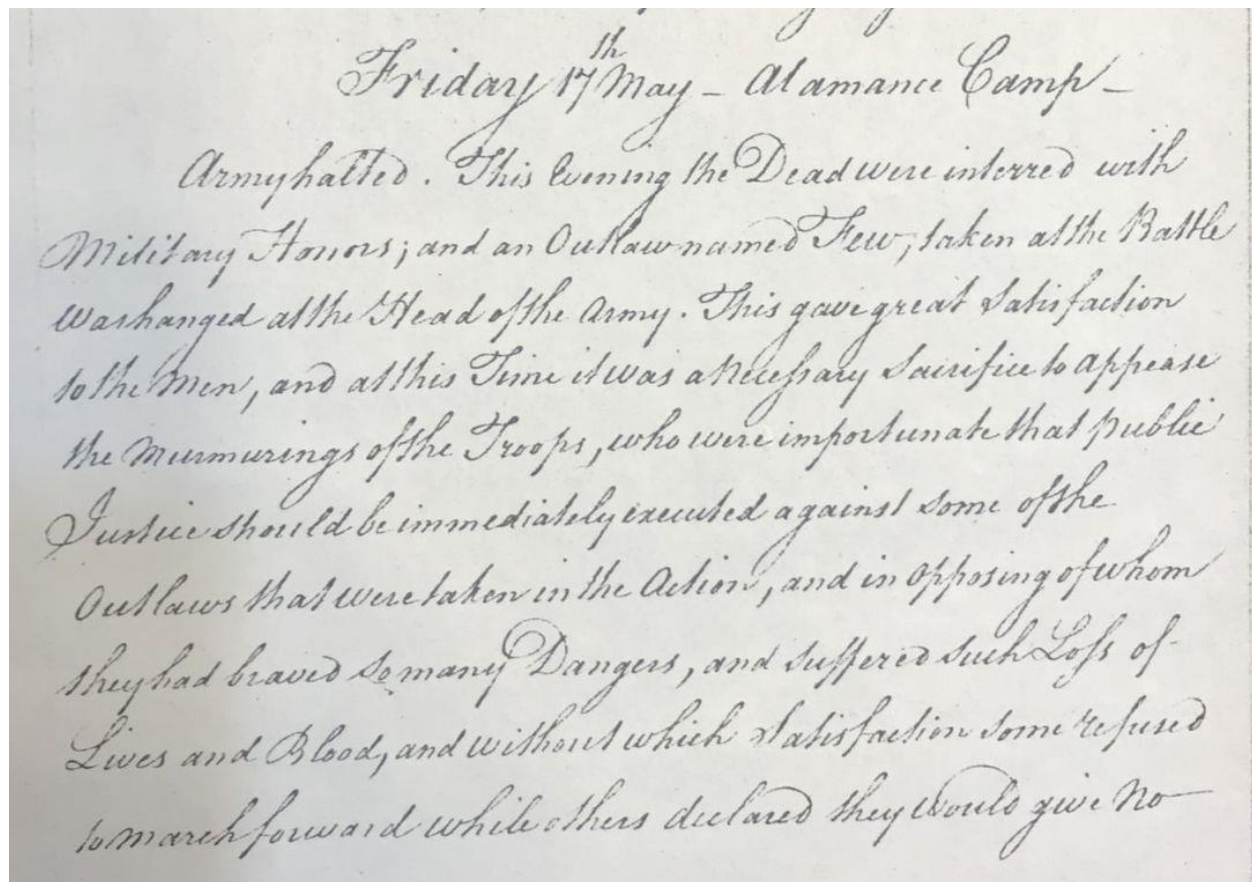 Friday 17th May - Alamance Camp -
Army halted. This Evening the Dead were interred with
Military Honors; and an Outlaw named Few, taken at the Battle
was hanged at the Head of the Army. This gave great Satisfaction
to the Men, and at this Time it was a Necessary Sacrifice to appease
the Murmurings of the Troops, who were importunate that public
Justice should be immediately executed against some of the
Outlaws that were taken in the Action, and in opposing of whom
they had braved so many Dangers, and suffered such Loss of
Lives and Blood, and without which Satisfaction some refused
to march forward while others declared they would give No